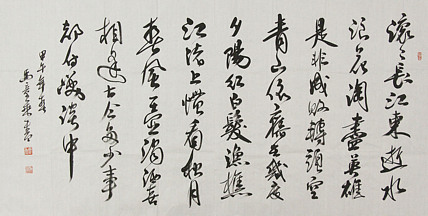 滾々長江東逝水
浪花淘盡英雄
是非成敗轉頭空
青山依舊在幾度
夕陽紅白髮漁樵
江渚上慣看秋月
春風一壺濁酒喜
相逢古今多少事
都付笑談中
甲午年春